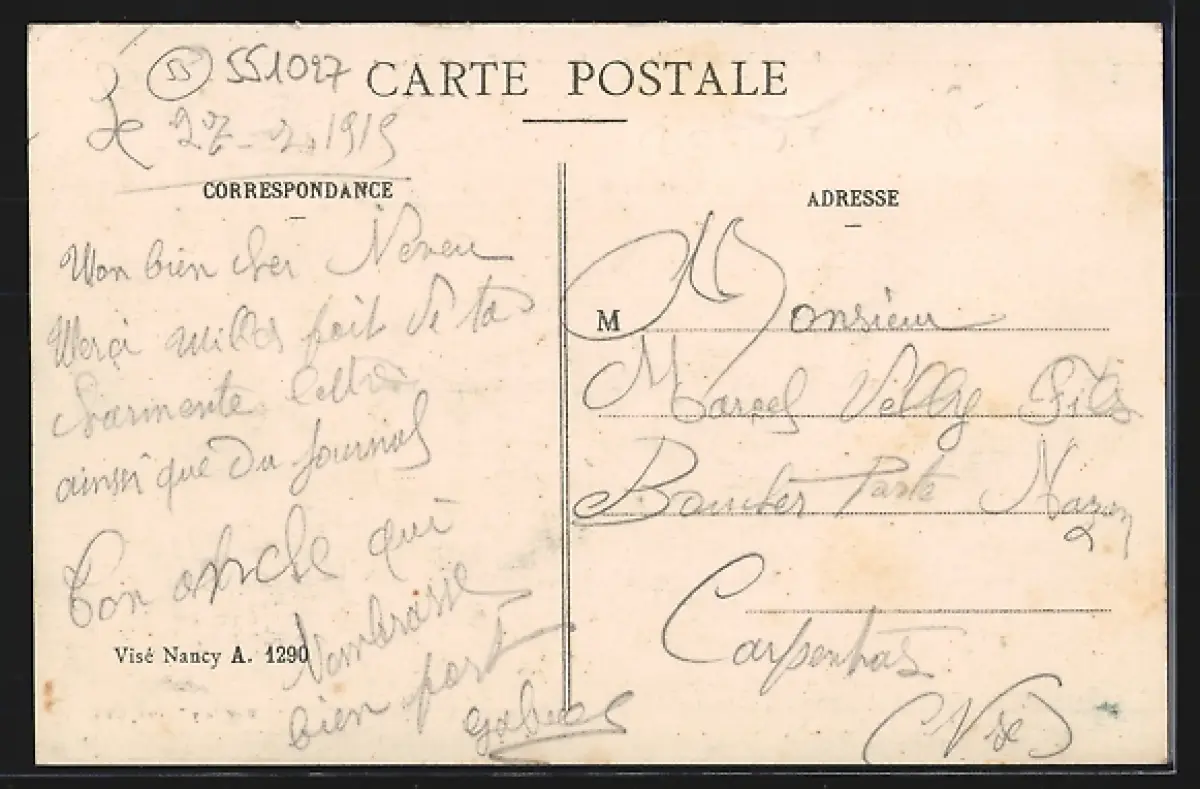 55 551027
CARTE POSTALE
Le 27-2-1915
CORRESPONDANCE
Mon bien cher Neveu
Merci milles foit de ta
charmente lettre
ainsi que du journal
Ton oncle qui
t'embrasse
bien fort
Gabriel
Visé Nancy A. 1290
ADRESSE
M Monsieur
Marcel Velly Fils
Porte
Carpentras
(Vse)